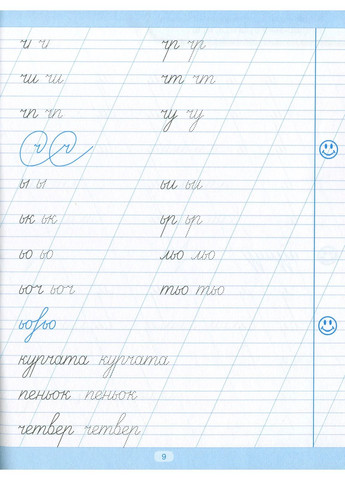 чі чі чр чр
чи чи чт чт
чп чп чу чу
ч ч
ьі ьі ьи ьи
ьк ьк ьр ьр
ьо ьо льо льо
ьоч ьоч тьо тьо
ьо ьо
курчата курчата
пеньок пеньок
четвер четвер
9